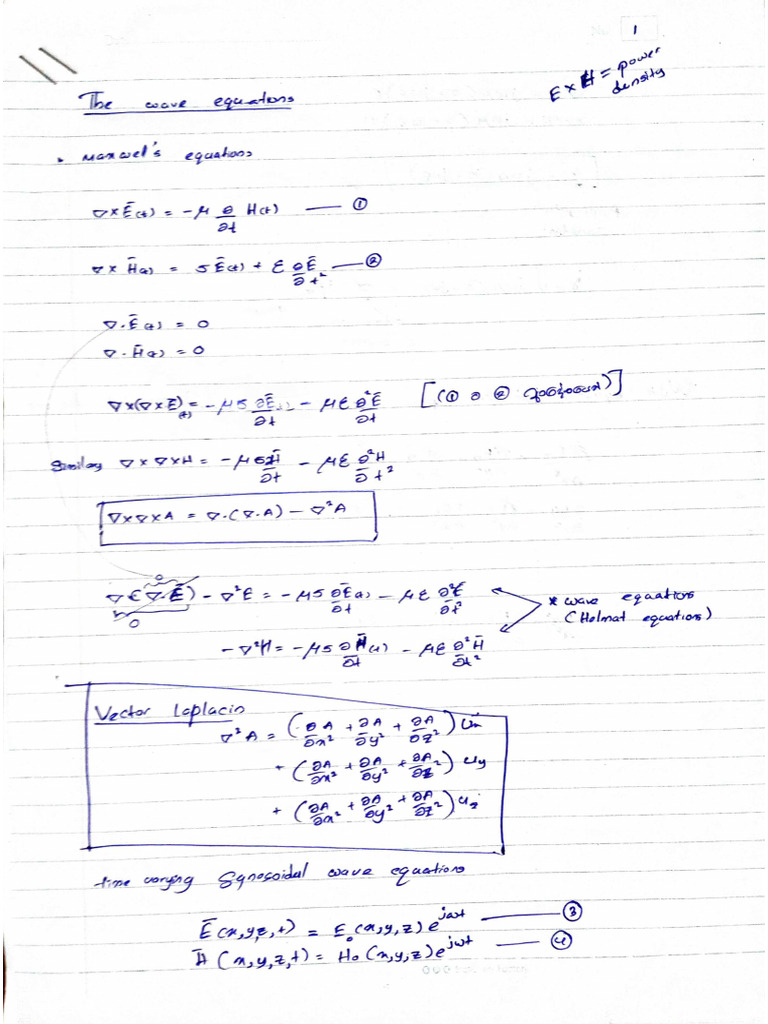 1
E × H = power density
The wave equations
• Maxwel's equations
∇×Ē(t) = -μ ∂/∂t H(t) —— ①
∇× H̄(t) = σĒ(t) + ε ∂Ē/∂t² —— ②
∇.Ē(t) = 0
∇.H̄(t) = 0
∇×(∇×Ē)(t) = -μσ ∂Ē/∂t - με ∂²Ē/∂t [(① ②)]
∇×∇×H = -μσ ∂H̄/∂t - με ∂²H/∂t²
∇×∇×A = ∇.(∇.A) - ∇²A
0
∇(∇.Ē) - ∇²E = -μσ ∂Ē(t)/∂t - με ∂²Ē/∂t² * wave equations
0 (Holmat equations)
-∇²H = -μσ ∂H̄(t)/∂t - με ∂²H̄/∂t²
Vector Laplacin
∇²A = (∂A/∂x² + ∂A/∂y² + ∂A/∂z²) Ux
+ (∂A/∂x² + ∂A/∂y² + ∂A/∂z²) uy
+ (∂A/∂x² + ∂A/∂y² + ∂A/∂z²) uz
time varying Synosoidal wave equations
Ē(x,y,z,t) = E₀(x,y,z) e^jωt —— ③
H̄(x,y,z,t) = Ho(x,y,z) e^jωt —— ④